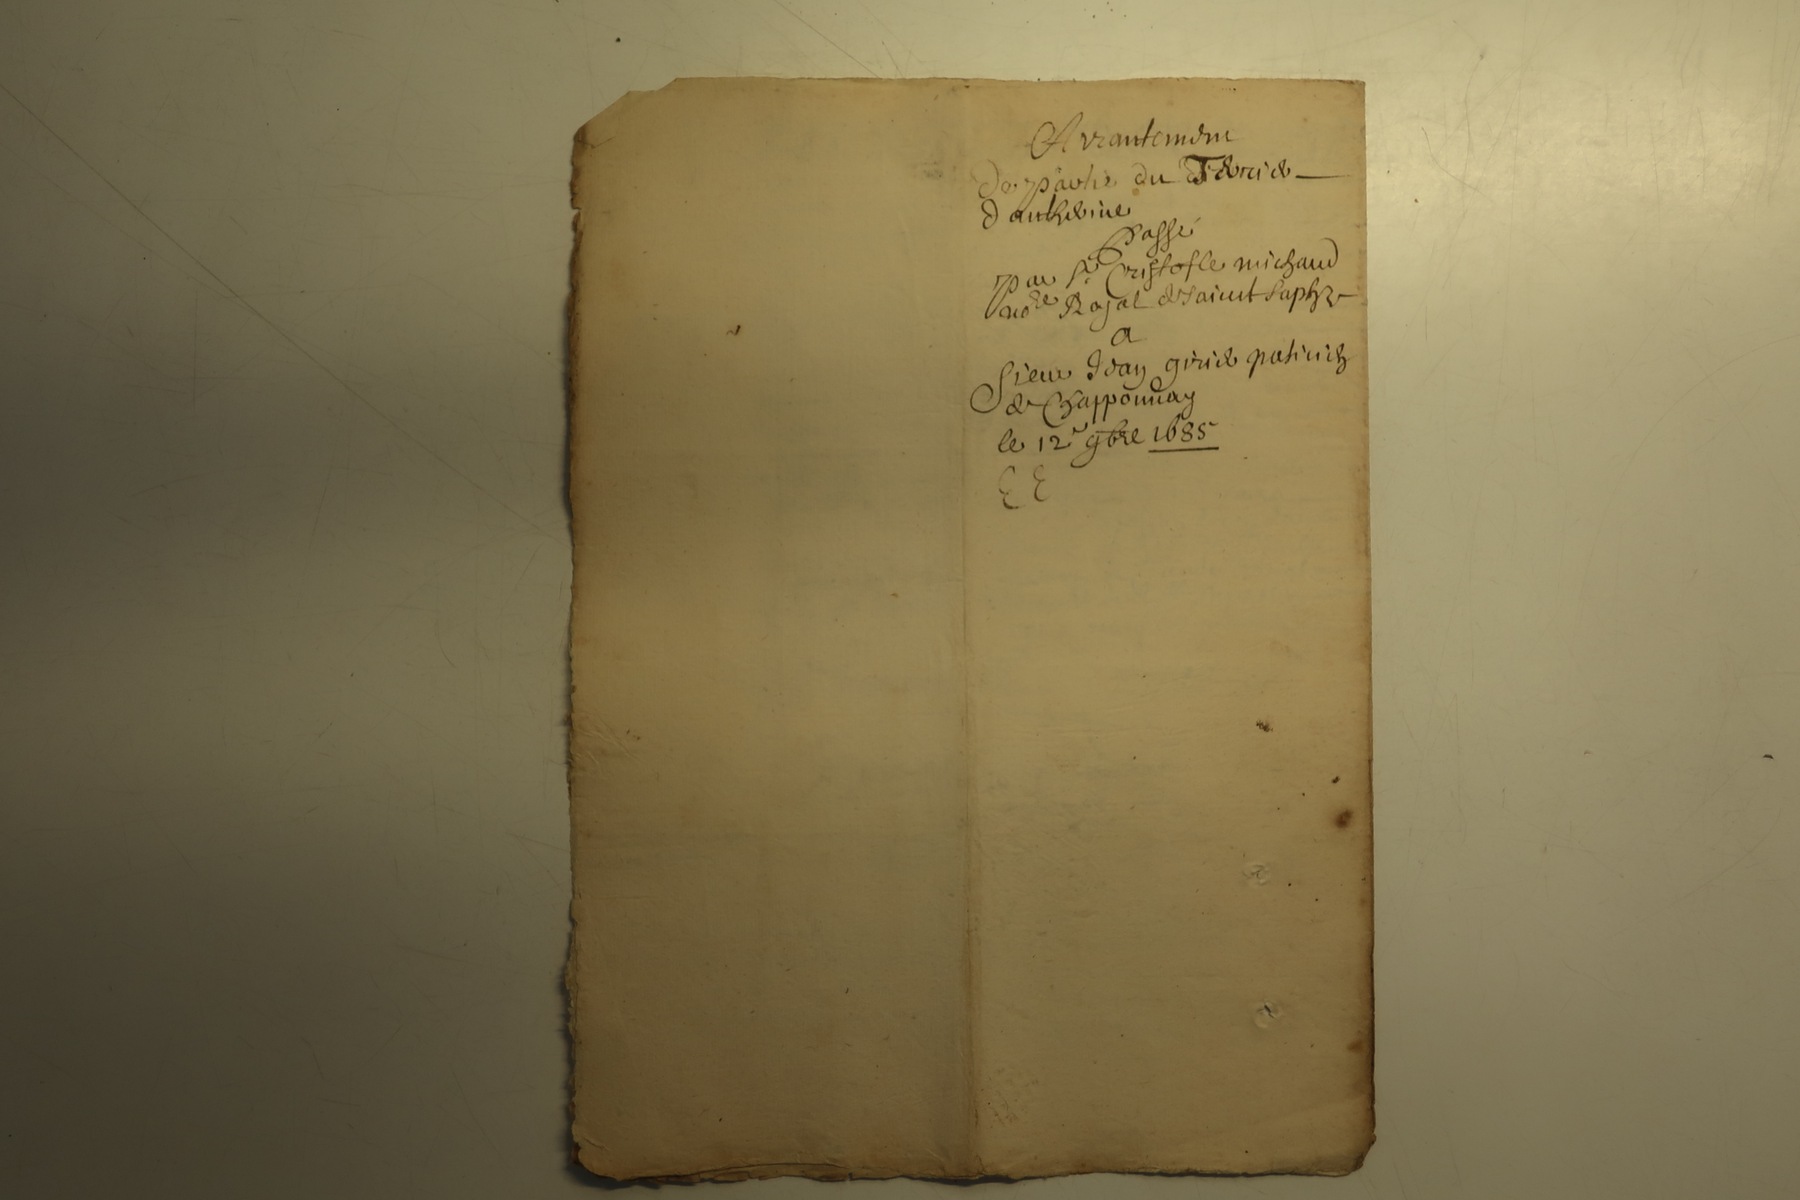 Arrantement
de partie du Terrier
d'anthoine
passé
par sr Cristofle michaud
nore Royal de saint saphr
a
Sieur Jean girier paticier
de Chapponnay
le 12e 9bre 1685